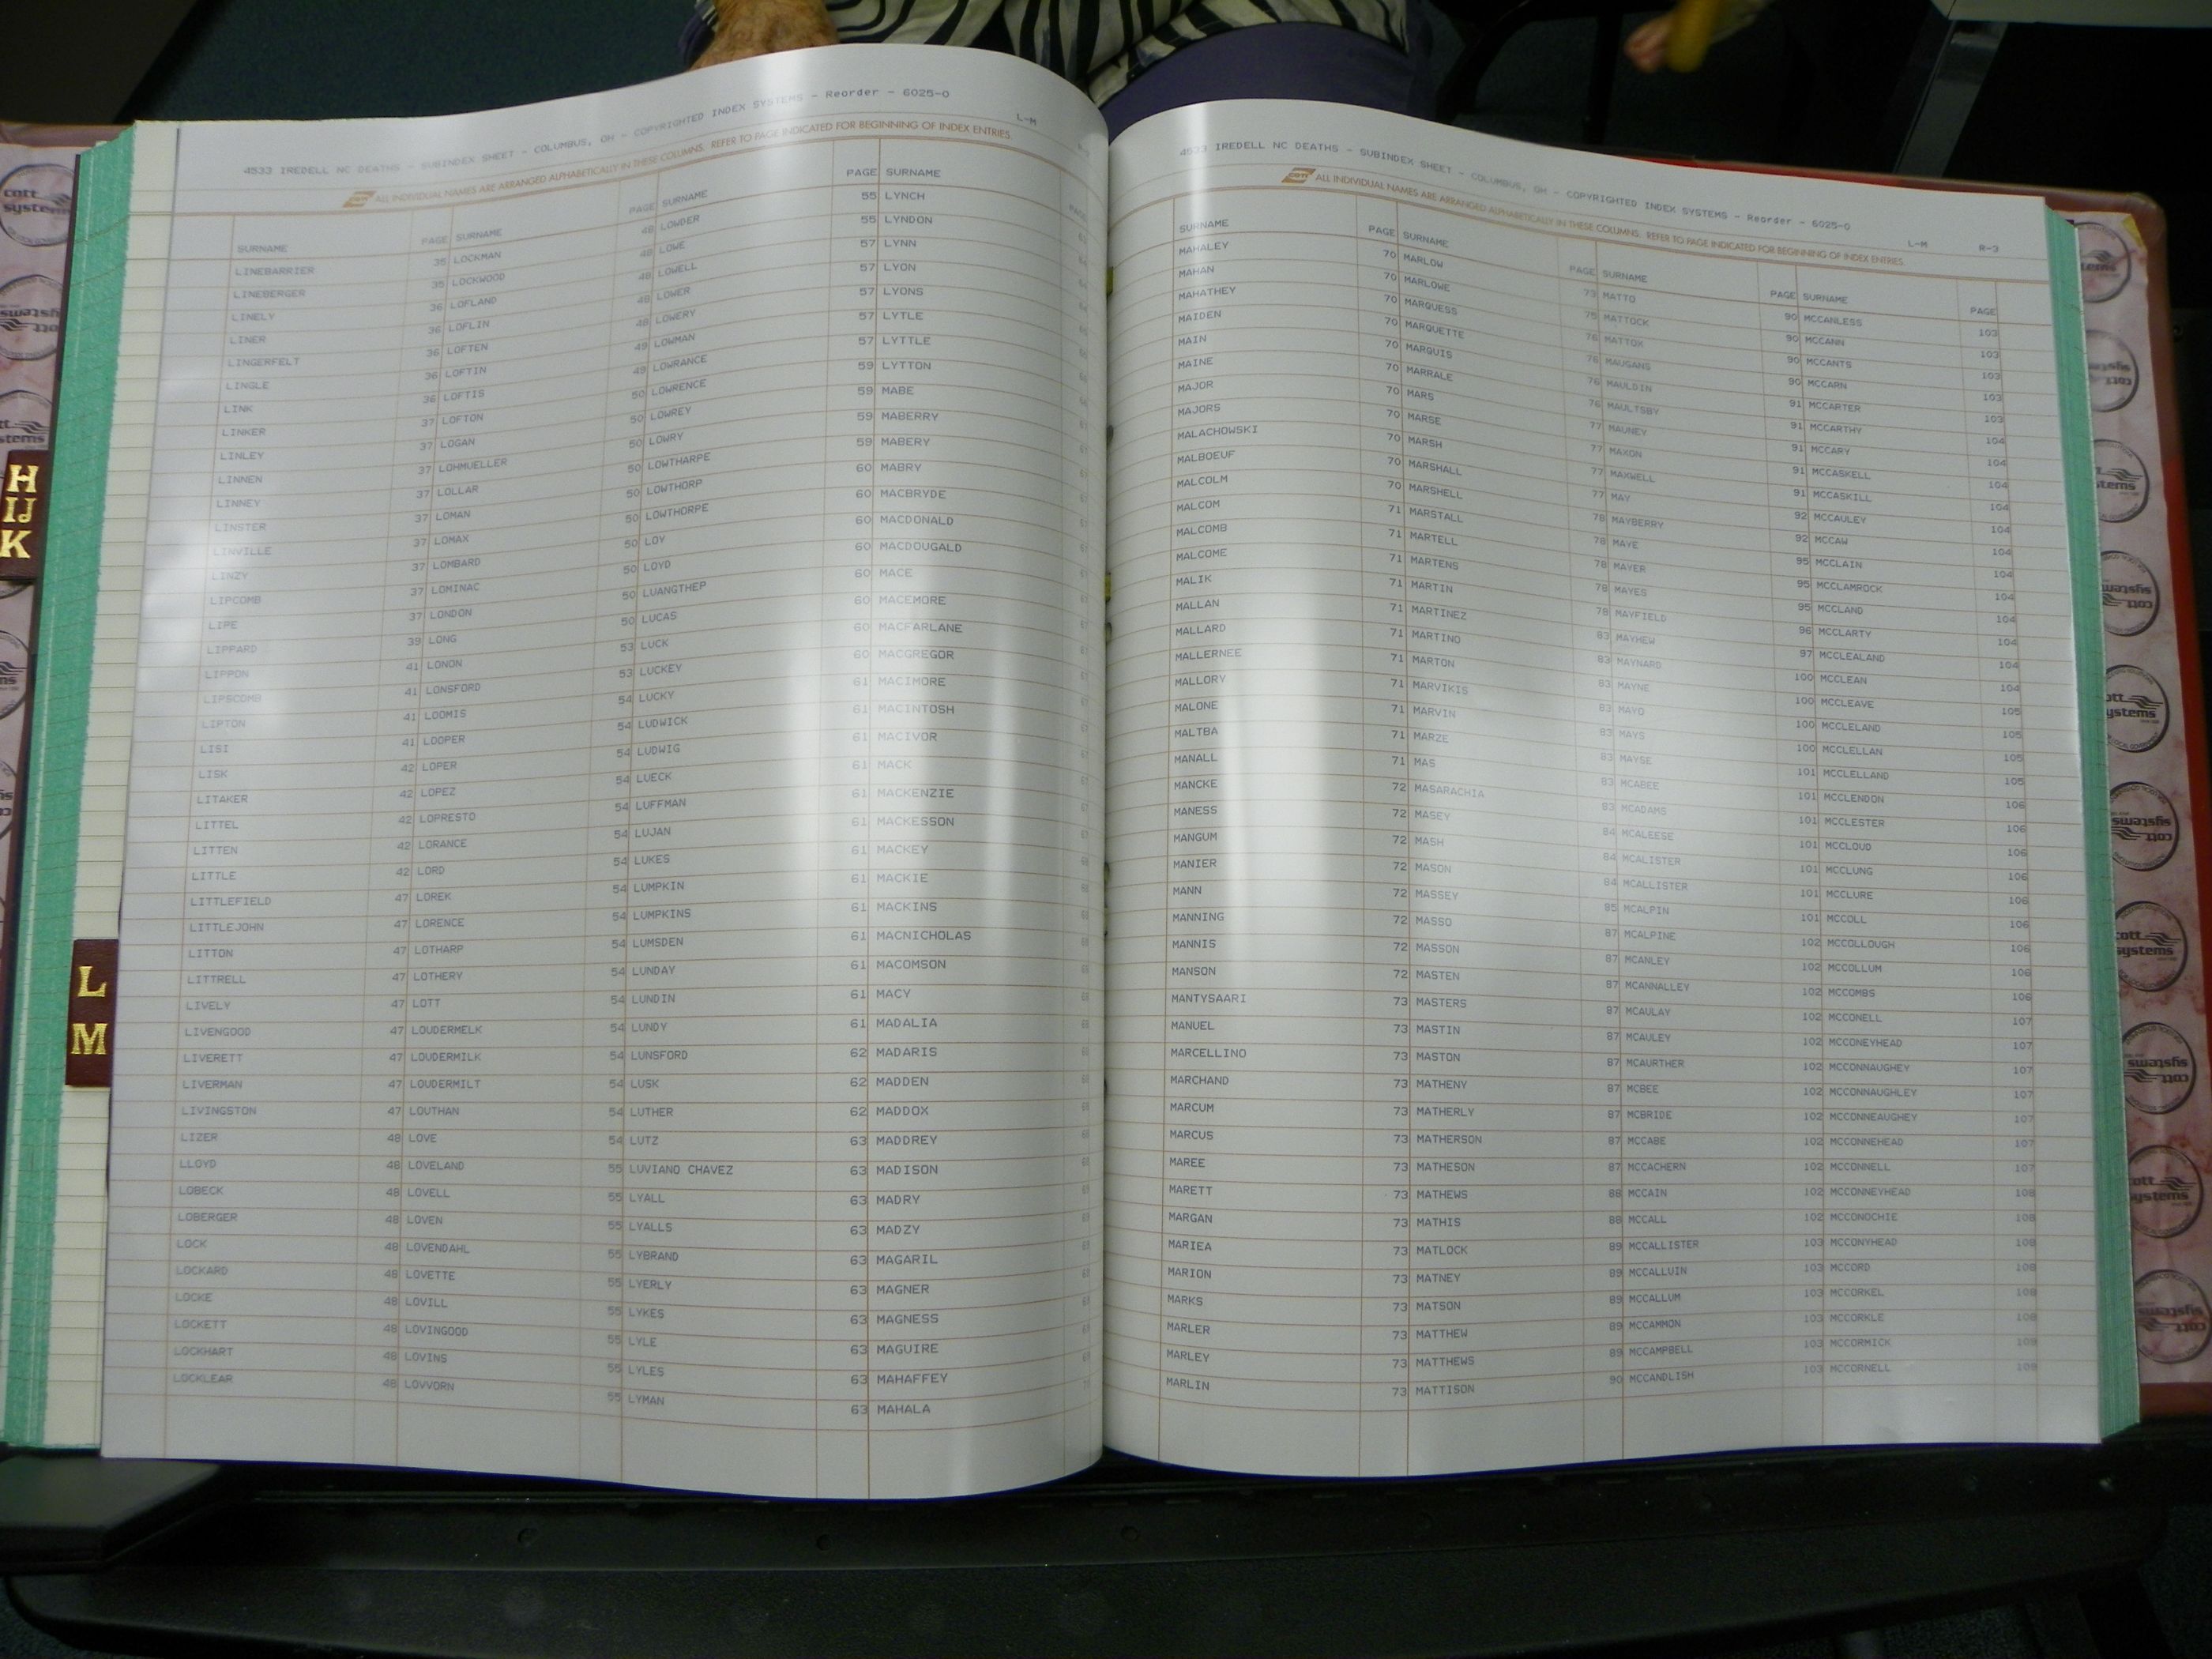 4533 IREDELL NC DEATHS - SUBINDEX SHEET - COLUMBUS, OH - COPYRIGHTED INDEX SYSTEMS - Reorder - 6025-0
L-M
ALL INDIVIDUAL NAMES ARE ARRANGED ALPHABETICALLY IN THESE COLUMNS. REFER TO PAGE INDICATED FOR BEGINNING OF INDEX ENTRIES.
SURNAME PAGE
LINEBARRIER 35
LINEBERGER 35
LINELY 36
LINER 36
LINGERFELT 36
LINGLE 36
LINK 36
LINKER 37
LINLEY 37
LINNEN 37
LINNEY 37
LINSTER 37
LINVILLE 37
LINZY 37
LIPCOMB 37
LIPE 37
LIPPARD 39
LIPPON 41
LIPSCOMB 41
LIPTON 41
LISI 41
LISK 42
LITAKER 42
LITTEL 42
LITTEN 42
LITTLE 42
LITTLEFIELD 47
LITTLEJOHN 47
LITTON 47
LITTRELL 47
LIVELY 47
LIVENGOOD 47
LIVERETT 47
LIVERMAN 47
LIVINGSTON 47
LIZER 48
LLOYD 48
LOBECK 48
LOBERGER 48
LOCK 48
LOCKARD 48
LOCKE 48
LOCKETT 48
LOCKHART 48
LOCKLEAR 48
SURNAME PAGE
LOCKMAN 48
LOCKWOOD 48
LOFLAND 48
LOFLIN 48
LOFTEN 48
LOFTIN 49
LOFTIS 49
LOFTON 50
LOGAN 50
LOHMUELLER 50
LOLLAR 50
LOMAN 50
LOMAX 50
LOMBARD 50
LOMINAC 50
LONDON 50
LONG 50
LONON 53
LONSFORD 53
LOOMIS 54
LOOPER 54
LOPER 54
LOPEZ 54
LOPRESTO 54
LORANCE 54
LORD 54
LOREK 54
LORENCE 54
LOTHARP 54
LOTHERY 54
LOTT 54
LOUDERMELK 54
LOUDERMILK 54
LOUDERMILT 54
LOUTHAN 54
LOVE 54
LOVELAND 55
LOVELL 55
LOVEN 55
LOVENDAHL 55
LOVETTE 55
LOVILL 55
LOVINGOOD 55
LOVINS 55
LOVVORN 55
SURNAME PAGE
LOWDER 55
LOWE 55
LOWELL 57
LOWER 57
LOWERY 57
LOWMAN 57
LOWRANCE 57
LOWRENCE 59
LOWREY 59
LOWRY 59
LOWTHARPE 59
LOWTHORP 60
LOWTHORPE 60
LOY 60
LOYD 60
LUANGTHEP 60
LUCAS 60
LUCK 60
LUCKEY 60
LUCKY 61
LUDWICK 61
LUDWIG 61
LUECK 61
LUFFMAN 61
LUJAN 61
LUKES 61
LUMPKIN 61
LUMPKINS 61
LUMSDEN 61
LUNDAY 61
LUNDIN 61
LUNDY 61
LUNSFORD 62
LUSK 62
LUTHER 62
LUTZ 63
LUVIANO CHAVEZ 63
LYALL 63
LYALLS 63
LYBRAND 63
LYERLY 63
LYKES 63
LYLE 63
LYLES 63
LYMAN 63
SURNAME
LYNCH
LYNDON
LYNN
LYON
LYONS
LYTLE
LYTTLE
LYTTON
MABE
MABERRY
MABERY
MABRY
MACBRYDE
MACDONALD
MACDOUGALD
MACE
MACEMORE
MACFARLANE
MACGREGOR
MACIMORE
MACINTOSH
MACIVOR
MACK
MACKENZIE
MACKESSON
MACKEY
MACKIE
MACKINS
MACNICHOLAS
MACOMSON
MACY
MADALIA
MADARIS
MADDEN
MADDOX
MADDREY
MADISON
MADRY
MADZY
MAGARIL
MAGNER
MAGNESS
MAGUIRE
MAHAFFEY
MAHALA
4533 IREDELL NC DEATHS - SUBINDEX SHEET - COLUMBUS, OH - COPYRIGHTED INDEX SYSTEMS - Reorder - 6025-0
L-M R-3
ALL INDIVIDUAL NAMES ARE ARRANGED ALPHABETICALLY IN THESE COLUMNS. REFER TO PAGE INDICATED FOR BEGINNING OF INDEX ENTRIES.
SURNAME PAGE
MAHALEY 70
MAHAN 70
MAHATHEY 70
MAIDEN 70
MAIN 70
MAINE 70
MAJOR 70
MAJORS 70
MALACHOWSKI 70
MALBOEUF 70
MALCOLM 70
MALCOM 71
MALCOMB 71
MALCOME 71
MALIK 71
MALLAN 71
MALLARD 71
MALLERNEE 71
MALLORY 71
MALONE 71
MALTBA 71
MANALL 71
MANCKE 72
MANESS 72
MANGUM 72
MANIER 72
MANN 72
MANNING 72
MANNIS 72
MANSON 72
MANTYSAARI 73
MANUEL 73
MARCELLINO 73
MARCHAND 73
MARCUM 73
MARCUS 73
MAREE 73
MARETT 73
MARGAN 73
MARIEA 73
MARION 73
MARKS 73
MARLER 73
MARLEY 73
MARLIN 73
SURNAME PAGE
MARLOW 73
MARLOWE 75
MARQUESS 76
MARQUETTE 76
MARQUIS 76
MARRALE 76
MARS 77
MARSE 77
MARSH 77
MARSHALL 77
MARSHELL 78
MARSTALL 78
MARTELL 78
MARTENS 78
MARTIN 78
MARTINEZ 83
MARTINO 83
MARTON 83
MARVIKIS 83
MARVIN 83
MARZE 83
MAS 83
MASARACHIA 83
MASEY 84
MASH 84
MASON 84
MASSEY 85
MASSO 87
MASSON 87
MASTEN 87
MASTERS 87
MASTIN 87
MASTON 87
MATHENY 87
MATHERLY 87
MATHERSON 87
MATHESON 87
MATHEWS 88
MATHIS 88
MATLOCK 89
MATNEY 89
MATSON 89
MATTHEW 89
MATTHEWS 89
MATTISON 90
SURNAME PAGE
MATTO 90
MATTOCK 90
MATTOX 90
MAUGANS 90
MAULDIN 91
MAULTSBY 91
MAUNEY 91
MAXON 91
MAXWELL 91
MAY 92
MAYBERRY 92
MAYE 95
MAYER 95
MAYES 95
MAYFIELD 96
MAYHEW 97
MAYNARD 100
MAYNE 100
MAYO 100
MAYS 100
MAYSE 101
MCABEE 101
MCADAMS 101
MCALEESE 101
MCALISTER 101
MCALLISTER 101
MCALPIN 101
MCALPINE 102
MCANLEY 102
MCANNALLEY 102
MCAULAY 102
MCAULEY 102
MCAURTHER 102
MCBEE 102
MCBRIDE 102
MCCABE 102
MCCACHERN 102
MCCAIN 102
MCCALL 102
MCCALLISTER 103
MCCALLUIN 103
MCCALLUM 103
MCCAMMON 103
MCCAMPBELL 103
MCCANDLISH 103
SURNAME PAGE
MCCANLESS 103
MCCANN 103
MCCANTS 103
MCCARN 103
MCCARTER 103
MCCARTHY 104
MCCARY 104
MCCASKELL 104
MCCASKILL 104
MCCAULEY 104
MCCAW 104
MCCLAIN 104
MCCLAMROCK 104
MCCLAND 104
MCCLARTY 104
MCCLEALAND 104
MCCLEAN 104
MCCLEAVE 105
MCCLELAND 105
MCCLELLAN 105
MCCLELLAND 106
MCCLENDON 106
MCCLESTER 106
MCCLOUD 106
MCCLUNG 106
MCCLURE 106
MCCOLL 106
MCCOLLOUGH 106
MCCOLLUM 106
MCCOMBS 107
MCCONELL 107
MCCONEYHEAD 107
MCCONNAUGHEY 107
MCCONNAUGHLEY 107
MCCONNEAUGHEY 107
MCCONNEHEAD 107
MCCONNELL 108
MCCONNEYHEAD 108
MCCONOCHIE 108
MCCONYHEAD 108
MCCORD 108
MCCORKEL 108
MCCORKLE 108
MCCORMICK 109
MCCORNELL 109
H
IJ
K
L
M
cott
systems